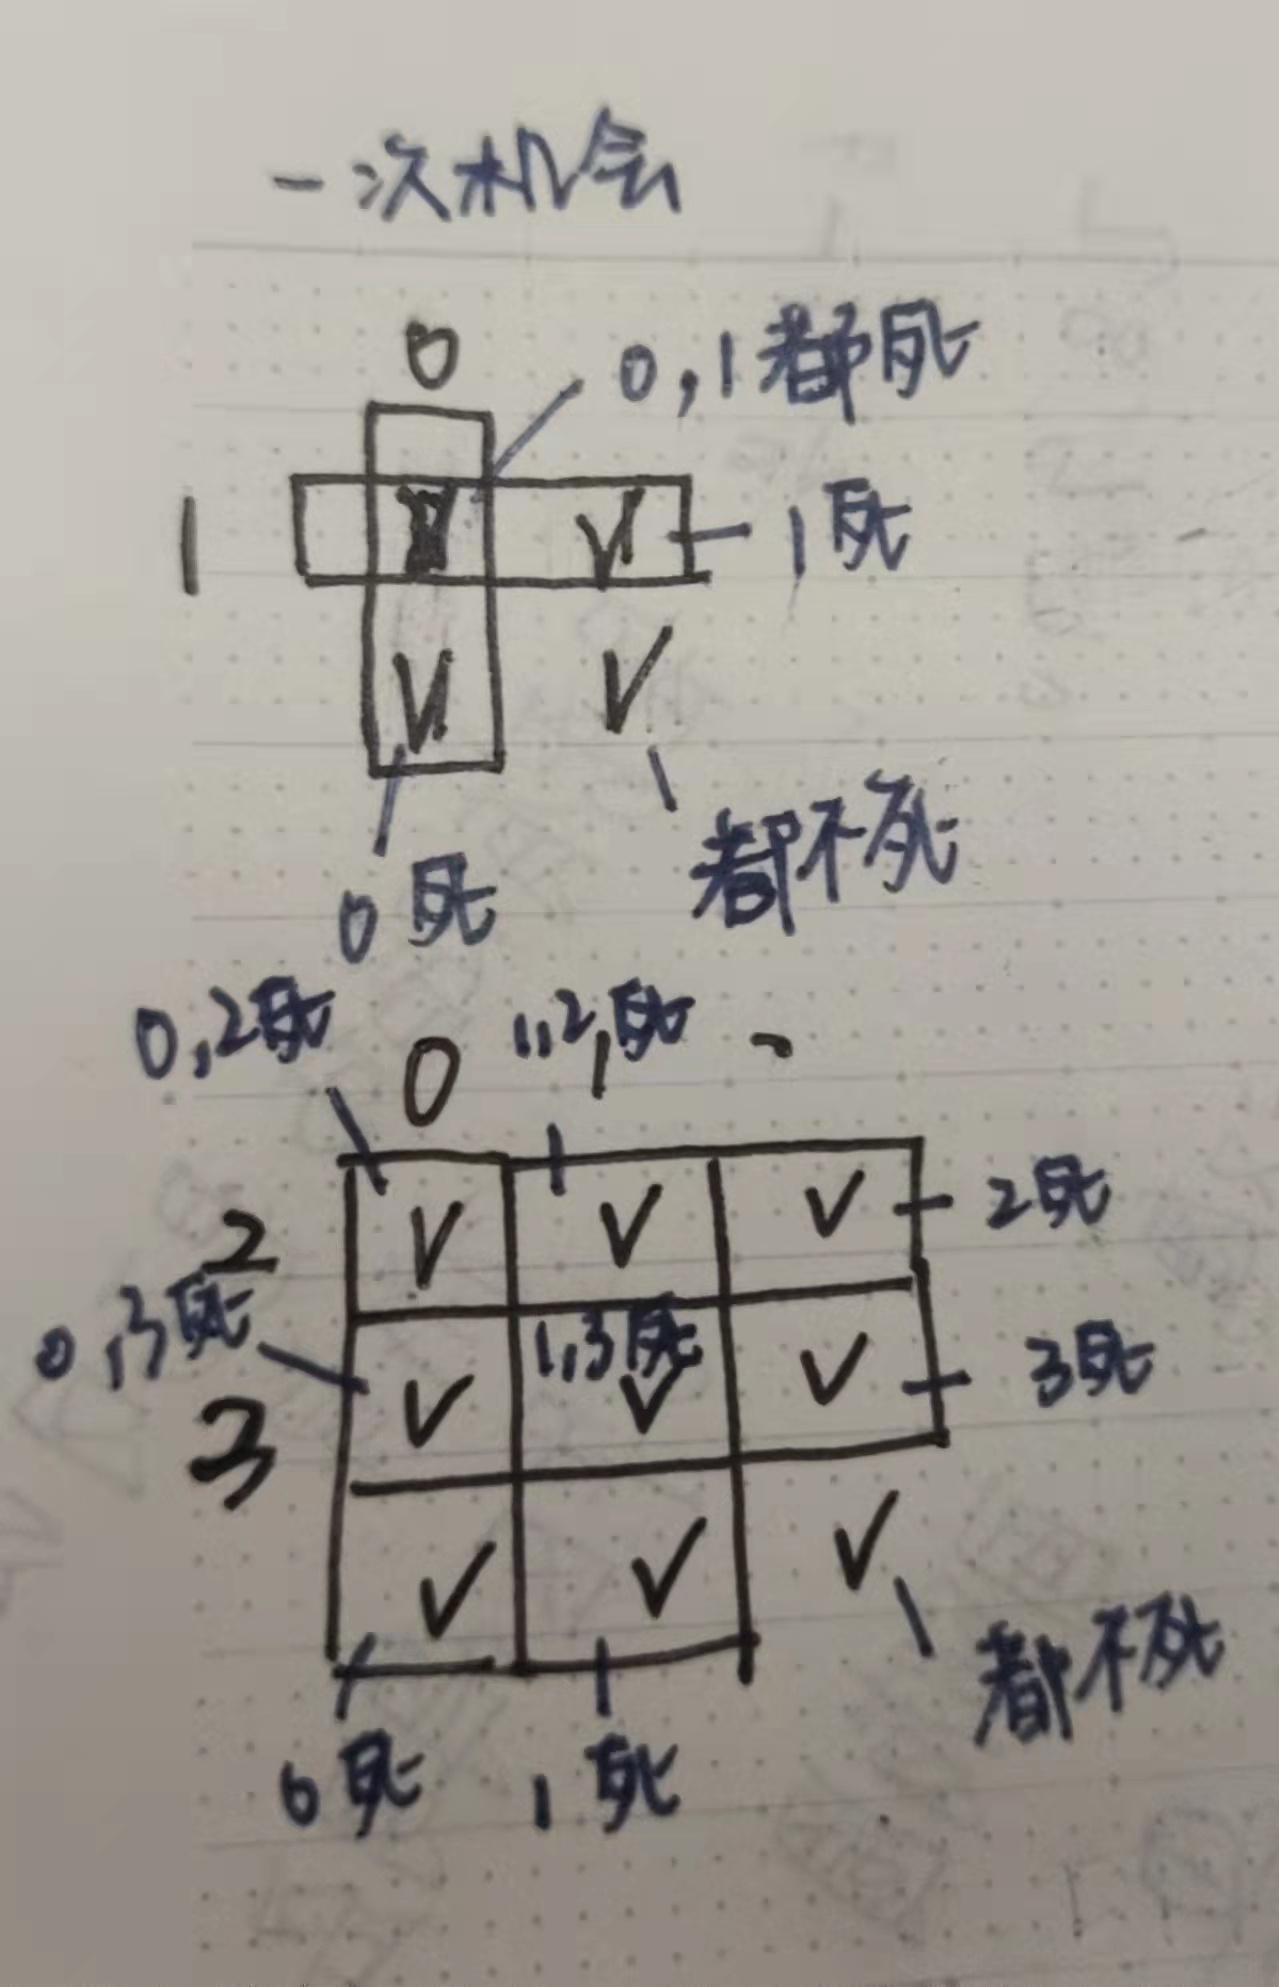 一次机会
0
0,1都死
1
1死
0死
都不死
0,2死
1,2死
0
1
2
2死
0,3死
1,3死
3死
3
都不死
0死
1死